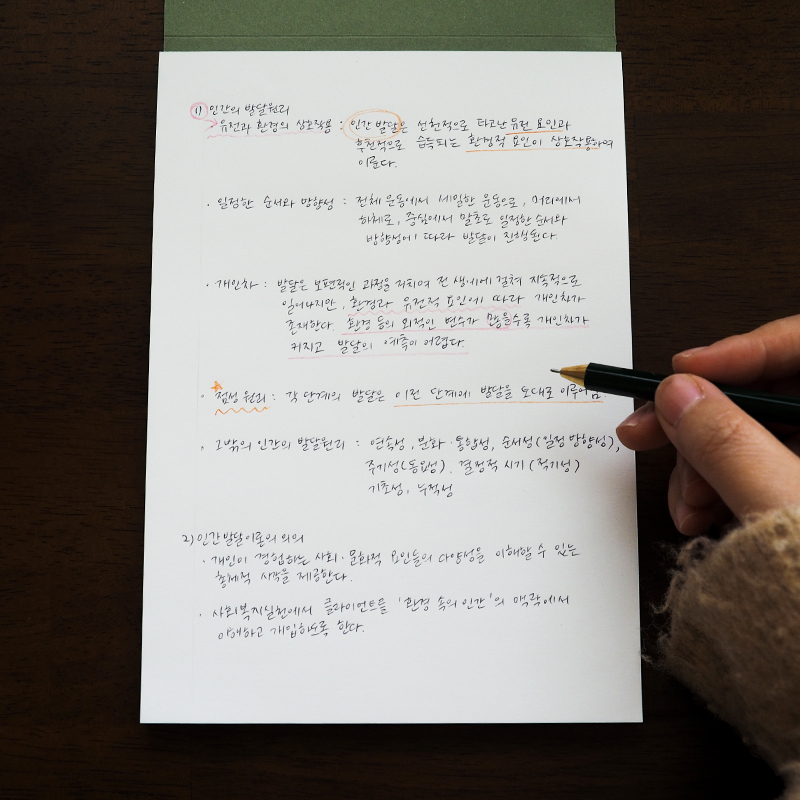 1) 인간의 발달원리
유전과 환경의 상호작용 : 인간 발달은 선천적으로 타고난 유전 요인과
후천적으로 습득되는 환경적 요인이 상호작용하여
이룬다.
· 일정한 순서와 방향성 : 전체 운동에서 세밀한 운동으로, 머리에서
하체로, 중심에서 말초로 일정한 순서와
방향성에 따라 발달이 진행된다.
· 개인차 : 발달은 보편적인 과정을 거치며 전 생애에 걸쳐 지속적으로
일어나지만, 환경과 유전적 요인에 따라 개인차가
존재한다. 환경 등의 외적인 변수가 많을수록 개인차가
커지고 발달의 예측이 어렵다.
· 점성 원리 : 각 단계의 발달은 이전 단계에 발달을 토대로 이루어짐.
· 그밖의 인간의 발달원리 : 연속성, 분화·통합성, 순서성(일정 방향성),
주기성(동요성). 결정적 시기 (적기성)
기초성, 누적성
2) 인간발달이론의 의의
· 개인이 경험하는 사회·문화적 요인들의 다양성을 이해할 수 있는
총체적 시각을 제공한다.
· 사회복지실천에서 클라이언트를 '환경 속의 인간'의 맥락에서
이해하고 개입하도록 한다.